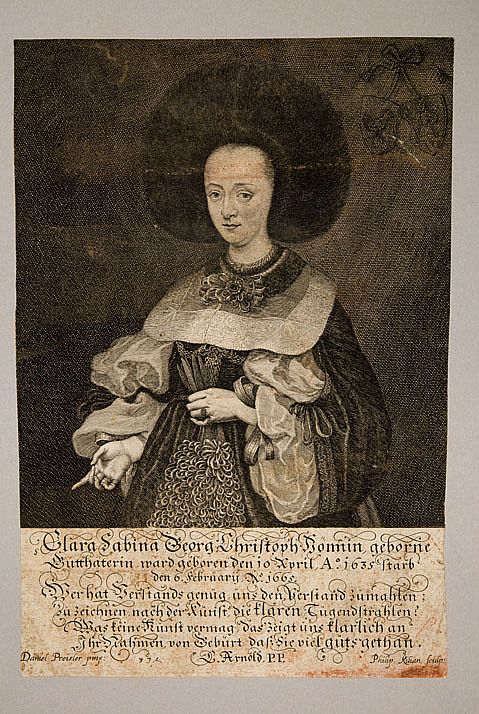 Clara Sabina Georg Christoph Hönnin geborne
Gutthaterin ward geboren den 10 April A.º 1635 starb
den 6. February Aº 1665.
Wer hat Verstands genug uns den Verstand zumahlen:
zu zeichnen nach der Kunst, die klaren Tugendstrahlen?
Was keine Kunst vermag das zeigt uns klarlich an
Ihr Nahmen von Geburt daß Sie viel guts gethan.
Daniel Preisler pinx: C. Arnold. P.P. Philip Kilian sculps: